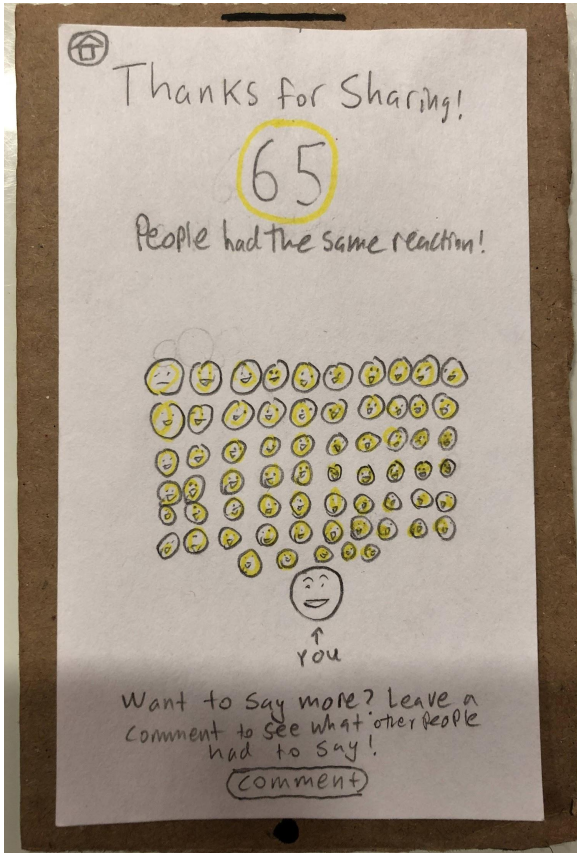 Thanks for Sharing!
65
People had the same reaction!
YOU
Want to say more? Leave a
comment to see what other people
had to say!
comment